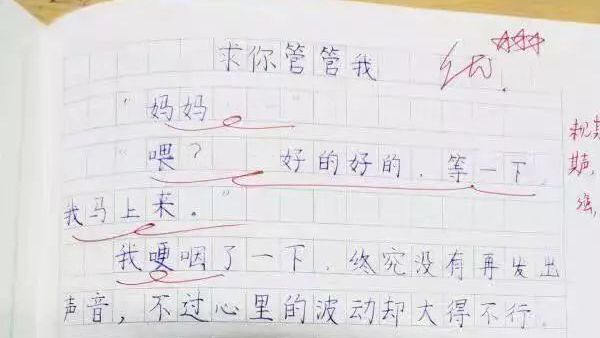 求你管管我
优.
“妈妈……”
“喂?……好的好的,等一下,
我马上来。”
我哽咽了一下,终究没有再发出
声音,不过心里的波动却大得不行。